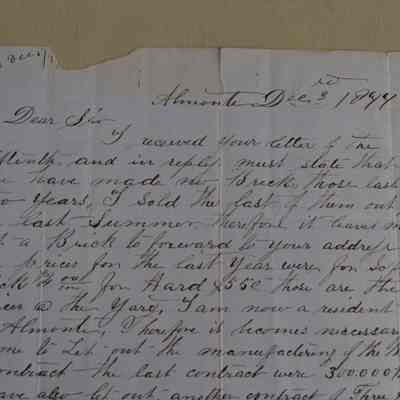 Almonte Dec 3rd 1877
Dear Sir
I received your letter of the
and in reply must state that
have made no Brick those last
two years, I sold the last of them out
last Summer therefore it leaves m
t a Brick to forward to your address
prices for the last year were for Sof
ick for Hard $5.50 those are the
ices @ the Yard, I am now a resident
Almonte, Therefore it becomes necessar
me to Let out the manufacturing of the B
ontract the last contract were 300.000
ave also let out another contract of Three